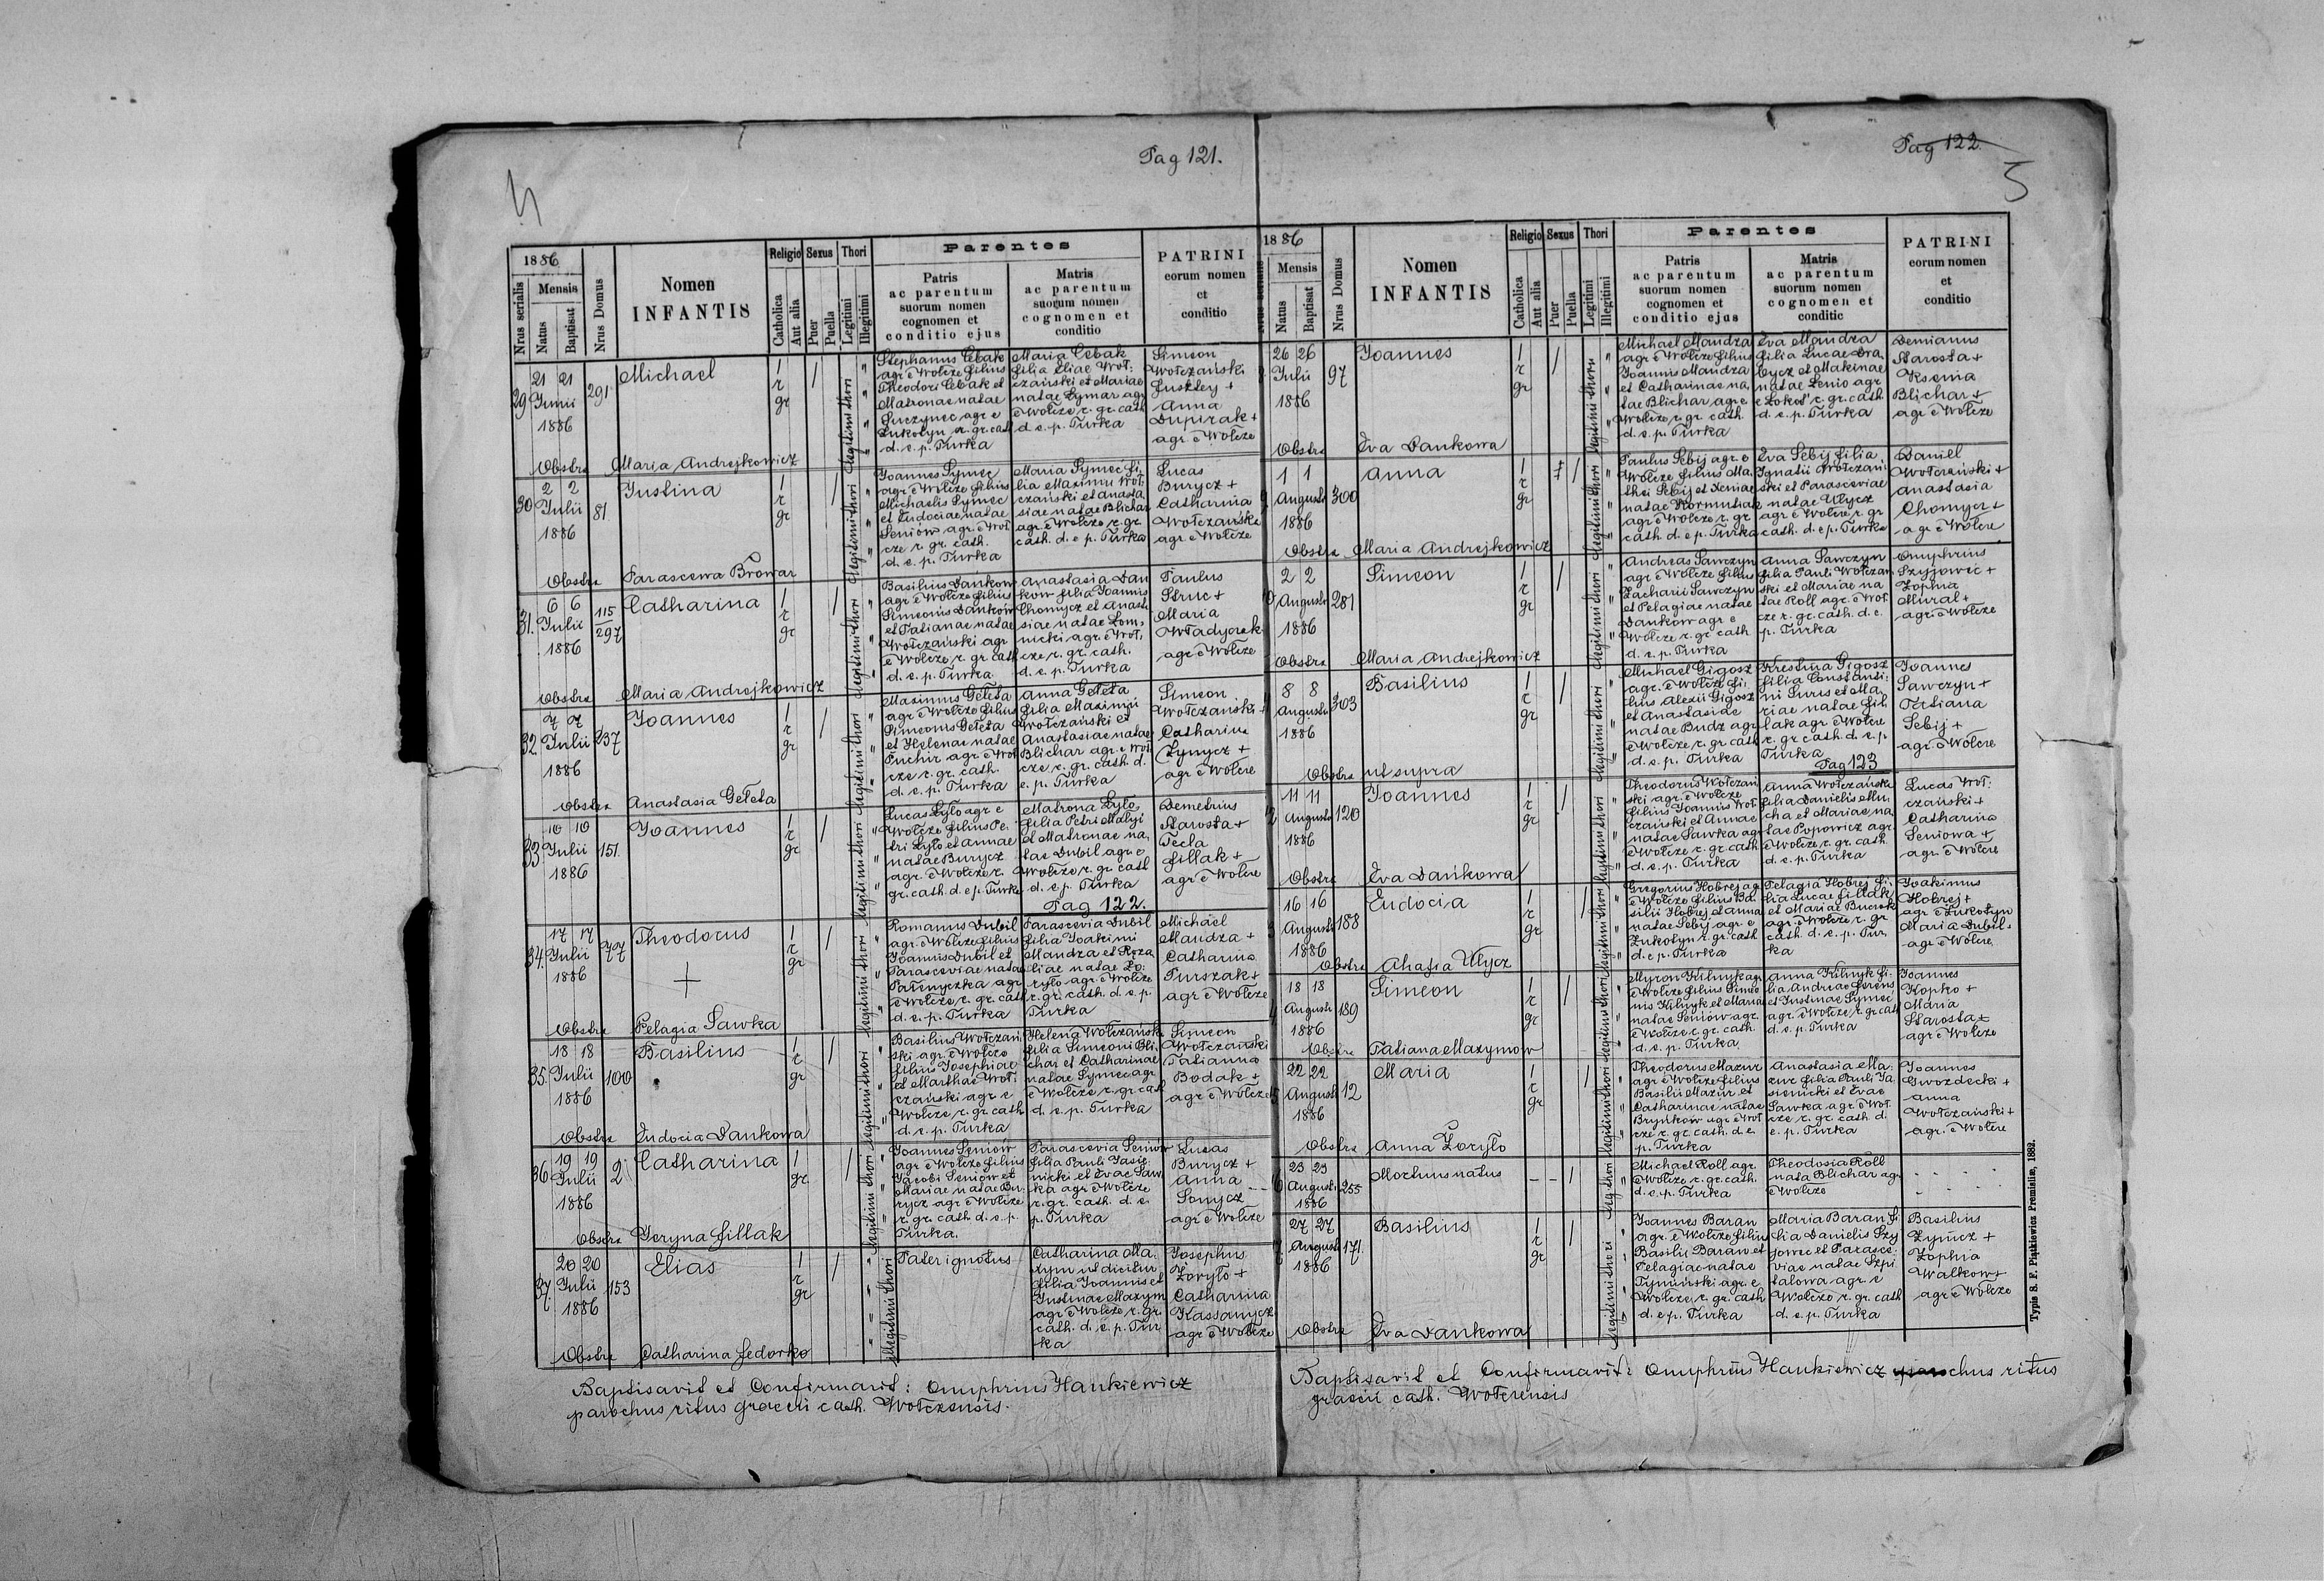 Pag 121.
4
1886
Nrus serialis
Mensis
Natus
Baptisat
Nrus Domus
Nomen
INFANTIS
Religio
Catholica
Aut alia
Sexus
Puer
Puella
Thori
Legitimi
Illegitimi
Parentes
Patris
ac parentum
suorum nomen
cognomen et
conditio ejus
Matris
ac parentum
suorum nomen
cognomen et
conditio
PATRINI
eorum nomen
et
conditio
29
21 21
Junii
1886
291
Michael
1
r
gr
1
Legitimi thori
Stephanus Cebak
agr e Wołcze filius
Theodori Cebak et
Matronae natae
Łuczynec agr e
Łukotyn r. gr. cath
d. e. p. Turka
Maria Cebak
filia Eliae Woł:
czański et Mariae
natae Łymar agr
e Wołcze r. gr. cath
d. e. p. Turka
Simeon
Wołczański
Łuszley +
Anna
Dupirak +
agr. e Wołcze
Obstrx Maria Andrejkowicz
30
2 2
Julii
1886
81
Justina
1
r
gr
1
Legitimi thori
Joannes Symec
agr e Wołcze filius
Michaelis Symec
et Eudociae natae
Seniow agr. e Woł
cze r. gr. cath.
d. e. p. Turka
Maria Symec fi,
lia Maximi Woł
czański et Anasta,
siae natae Blichar
agr. e Wołcze r. gr.
cath. d. e. p. Turka
Lucas
Burycz +
Catharina
Wołczańska
agr. e Wołcze
Obstrx Parascewa Browar
31.
6 6
Julii
1886
115
297
Catharina
1
r
gr
1
Legitimi thori
Basilius Dańkow
agr e Wołcze filius
Simeonis Dańkow
et Tatianae natae
Wołczański agr
e Wołcze r. gr. cath
d. e. p. Turka
Anastasia Dań
kow filia Joannis
Chomycz et Anasta
siae natae Łom,
nicki agr. e Woł,
cze r. gr. cath.
d. e. p. Turka
Paulus
Struc +
Maria
Władyczak
agr e Wołcze
Obstrx Maria Andrejkowicz
32
7 7
Julii
1886
237
Joannes
1
r
gr
1
Legitimi thori
Maximus Gełeta
agr e Wołcze filius
Simeonis Gełeta
et Helenae natae
Puchir agr e Woł
cze r. gr. cath.
d. e. p. Turka
Anna Gełeta
filia Maximi
Wołczański et
Anastasiae natae
Blichar agr e Woł
cze r. gr. cath d.
e. p. Turka
Simeon
Wołczański +
Catharina
Zynycz +
agr e Wołcze
Obstrx Anastasia Gełeta
33
10 10
Julii
1886
151.
Joannes
1
r
gr
1
Legitimi thori
Lucas Łyło agr e
Wołcze filius Pe,
tri Łyło et Annae
natae Burycz
agr. e Wołcze r.
gr. cath. d. e p. Turka
Matrona Łyło
filia Petri Małyj
et Matronae na,
tae Dubil agr e
Wołcze r. gr. cath
d. e. p. Turka
Pag 122.
Demetrius
Starosta +
Tecla
Fillak +
agr e Wołcze
34.
17 17
Julii
1886
77
Theodorus
+
1
r
gr
1
Legitimi thori
Romanus Dubil
agr. e Wołcze filius
Joannis Dubil et
Parasceviae natae
Pałenyczka agr
e Wołcze r. gr. cath
d. e. p. Turka
Parascevia Dubil
filia Joakimi
Mandza et Roza,
liae natae Zo:
ryło agr. e Wołcze
r. gr. cath. d. e. p.
Turka
Michael
Mandza +
Catharina
Purszak +
agr e Wołcze
Obstrx Pelagia Sawka
35.
18 18
Julii
1886
100
Basilius
1
r
gr
1
Legitimi thori
Basilius Wołczań
ski agr. e Wołcze
filius Josephiae
et Marthae Woł:
czański agr e
Wołcze r. gr. cath
d. e. p. Turka
Helena Wołczańsk
filia Simeoni Bli,
char et Catharinae
natae Symec agr
e Wołcze r. gr. cath
d. e. p. Turka
Simeon
Wołczański
Tatianna
Bodak +
agr e Wołcze
Obstrx Eudocia Dankowa
36
19 19
Julii
1886
2
Catharina
1
gr
1
Legitimi thori
Joannes Seniów
agr e Wołcze filius
Jacobi Seniow et
Mariae natae Bu,
rycz agr e Wołcze
r. gr. cath d. e. p.
Turka.
Parascevia Seniów
filia Pauli Jasie,
nicki et Evae Saw
ka agr e Wołcze
r. gr. cath. d. e.
p. Turka
Lucas
Burycz +
Anna
Sonycz
agr e Wołcze
Obstrx Jeryna Fillak
37.
20 20
Julii
1886
153
Elias
1
r
gr
1
Illegitimi thori
Pater ignotus
Catharina Ma,
xym ut dicitur
filia Joannis et
Justinae Maxym
agr e Wołcze r. gr.
cath. d. e. p. Tur
ka
Josephus
Zoryło +
Catharina
Kassanycz
agr e Wołcze
Obstrx Catharina Fedorko
Baptisavit et Confirmavit: Onuphrius Hankiewicz
parochus ritus graeci cath. Wołczensis.
Pag 122.
5
1886
Mensis
Natus
Baptisat
Nrus Domus
Nomen
INFANTIS
Religio
Catholica
Aut alia
Sexus
Puer
Puella
Thori
Legitimi
Illegitimi
Parentes
Patris
ac parentum
suorum nomen
cognomen et
conditio ejus
Matris
ac parentum
suorum nomen
cognomen et
conditic
PATRINI
eorum nomen
et
conditio
26 26
Julii
1886
97
Joannes
1
r
gr
1
Legitimi thori
Michael Mandza
agr e Wołcze filius
Joannis Mandza
et Catharinae na,
tae Blichar agr e
Wołcze r. gr. cath.
d. e. p. Turka
Eva Mandza
filia Lucae Dra,
bycz et Makinae
natae Senio agr
e Łokoć r. gr. cath
d. e. p. Turka
Demianus
Starosta +
Ksenia
Blichar +
agr e Wołcze
Obstrx Eva Dankowa
1 1
Augusti
1886
300
Anna
1
r
gr
1
Legitimi thori
Paulus Sebij agr. e
Wołcze filius Ma,
thei Sebij et Xeniae
natae Kormutiak
agr e Wołcze r. gr
cath d. e p. Turka
Eva Sebij filia
Ignatii Wołczań:
ski et Parasceviae
natae Ułycz
agr e Wołcze r. gr
cath. d. e p. Turka
Daniel
Wołczański +
Anastasia
Chomycz +
agr e Wołcze
Obstrx Maria Andrejkowicz
2 2
Augusti
1886
281
Simeon
1
r
gr
1
Legitimi thori
Andreas Sawczyn
agr e Wołcze filius
Zacharii Sawczyn
et Pelagiae natae
Dankow agr e
Wołcze r. gr cath
d. e. p. Turka
Anna Sawczyn
filia Pauli Wołczań
ski et Mariae na
tae Roll agr. e Woł
cze r. gr. cath. d. e.
p. Turka
Onuphrius
Szyjowic +
Zophia
Mural +
agr e Wołcze
Obstrx Maria Andrejkowicz
8 8
Augusti
1886
303
Basilius
1
r
gr
1
Legitimi thori
Michael Gigosz
agr. e Wołcze fi:
lius Alexii Gigosz
et Anastasiae
natae Budz agr
e Wołcze r. gr. cath
d. e. p. Turka
Krestina Gigosz
filia Constanti:
ni Surus et Ma,
riae natae Fil,
lak agr e Wołcze
r. gr. cath d. e. p
Turka
Pag 123
Joannes
Sawczyn +
Tatiana
Sebij +
agr. e Wołcze
Obstrx ut supra
11 11
Augusti
1886
120
Joannes
1
r
gr
1
Legitimi thori
Theodorus Wołczań
ski agr. e Wołcze
filius Joannis Woł
czański et Annae
natae Sawka agr
e Wołcze r. gr. cath
d. e. p. Turka
Anna Wołczańska
filia Danielis Mu,
cha et Mariae na,
tae Popowicz agr.
e Wołcze r. gr. cath.
d. e. p. Turka
Lucas Woł:
czański +
Catharina
Seniowa +
agr. e Wołcze
Obstrx Eva Dańkowa
16 16
Augusti
1886
188
Eudocia
1
r
gr
1
Legitimi thori
Gregorius Hobrej ag
e Wołcze filius Ba,
silii Hobrej et Anna
natae Sebij agr. e
Łukotyn r. gr. cath
d. e p. Turka
Pelagia Hobrej fi,
lia Lucae Fillak
et Mariae Bucok
agr. e Wołcze r. gr
cath. d. e. p. Tur,
ka
Joakimus
Hobrej +
agr e Łukotyn
Maria Dubil +
agr e Wołcze
Obstrx Ahafia Ułycz
18 18
Augusti
1886
189
Simeon
1
r
gr
1
Legitimi thori
Myron Kilnyk agr
e Wołcze filius Simeo
nis Kilnyk et Mariae
natae Seniow agr.
e Wołcze r. gr. cath
d. e. p. Turka
Anna Kilnyk fi,
lia Andreae Ferens
et Justinae Symec
agr. e Wołcze r. gr. cath
d. e. p. Turka
Joannes
Kopko +
Maria
Starosta +
agr e Wołcze
Obstrx Tatiana Maxymow
22 22
Augusti
1886
12
Maria
1
r
gr
1
Legitimi thori
Theodorus Mazur
agr e Wołcze filius
Basilii Mazur et
Catharinae natae
Brynkow agr e Woł
cze r. gr. cath. d. e.
p. Turka
Anastasia Ma,
zur filia Pauli Ja,
sienicki et Evae
Sawka agr. e Woł
cze r. gr. cath d.
e. p. Turka
Joannes
Gwozdecki +
Anna
Wołczański +
agr. e Wołcze
Obstrx Anna Zoryło
23 23
Augusti
1886
255
Mortuus natus
1
Leg thori
Michael Roll agr.
e Wołcze r. gr. cath.
d. e. p. Turka
Theodosia Roll
nata Blichar agr
e Wołcze
27 27
Augusti
1886
171.
Basilius
1
r
gr
1
Legitimi thori
Joannes Baran
agr. e Wołcze filius
Basilii Baran et
Pelagiae natae
Tymiński agr. e
Wołcze r. gr. cath
d. e p. Turka
Maria Baran fi
lia Danielis Szy
jowec et Parasce,
viae natae Szpi
talowa agr. e
Wołcze r. gr. cath
d. e. p. Turka
Basilius
Zynicz +
Zophia
Walkow +
agr e Wołcze
Obstrx Eva Dankowa
Baptisavit et Confirmavit: Onuphrius Hankiewicz parochus ritus
graecii cath. Wołczensis
Typis S. F. Piątkiewicz Premisliae, 1882.